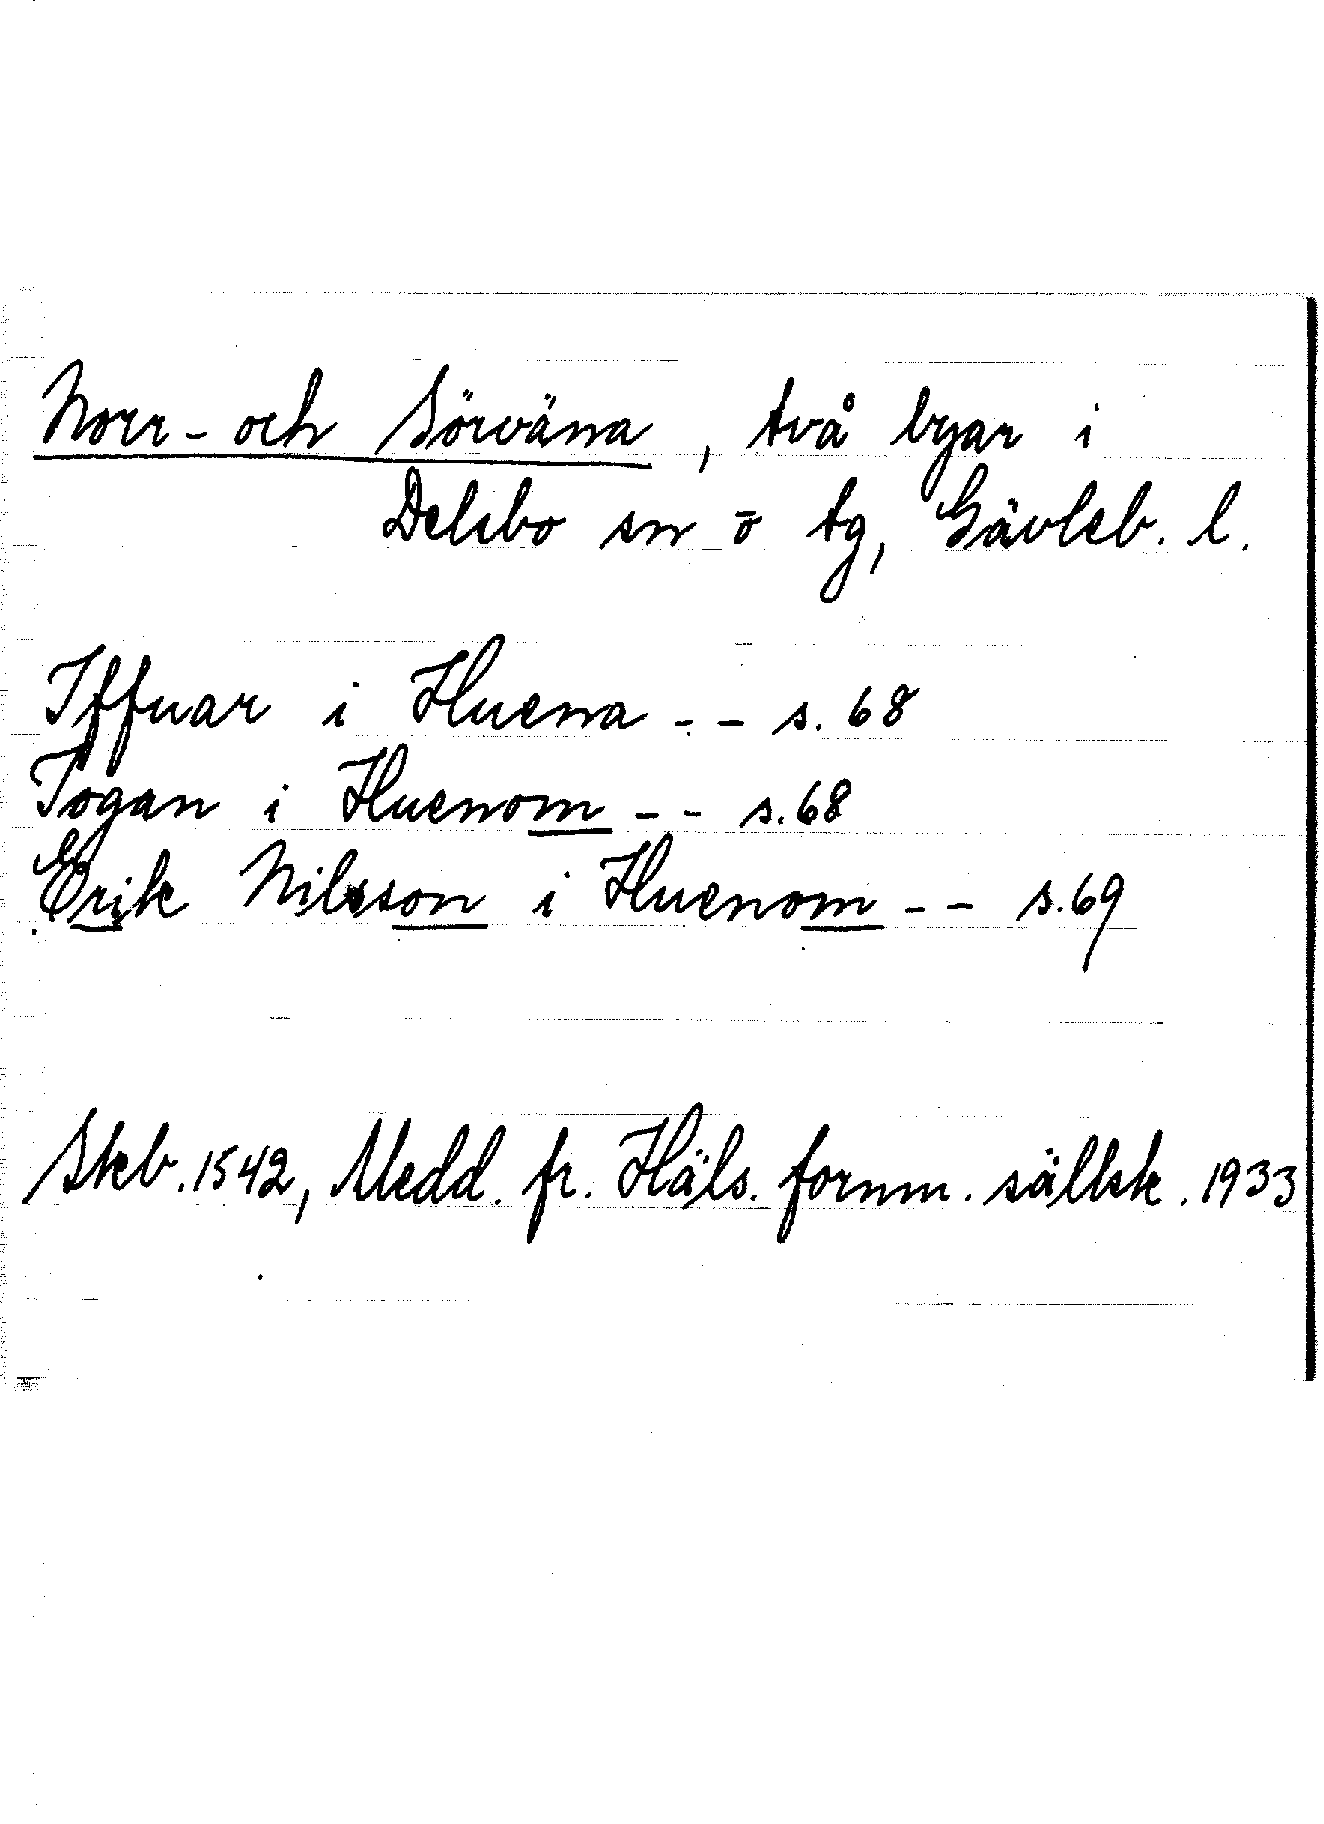 Norr- och Sörväna, två byar i
Delsbo sn o tg, Gävleb. l.
Iffuar i Huena - - s. 68
Togan i Huenom - - s. 68
Erik Nilsson i Huenom - - s. 69
Skb. 1542, Medd. fr. Häls. fornm. sällsk. 1933